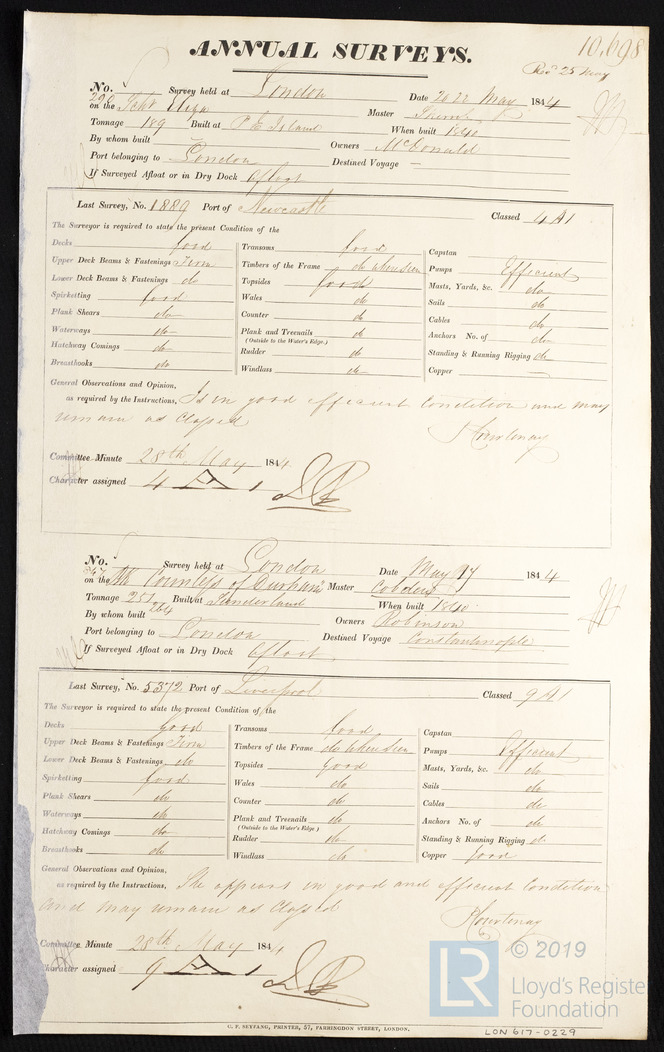 10,698
ANNUAL SURVEYS.
Recd 25 May
No. Survey held at London Date 20 22 May 1844
on the Schr Eliza Master
Tonnage 189 Built at P E Island When built 1840
By whom built Owners McDonald
Port belonging to London Destined Voyage —
If Surveyed Afloat or in Dry Dock Afloat
Last Survey, No. 1889 Port of Newcastle Classed 4 A 1
The Surveyor is required to state the present Condition of the
Decks Good Transoms Good Capstan
Upper Deck Beams & Fastenings Firm Timbers of the Frame do when seen Pumps Efficient
Lower Deck Beams & Fastenings do Topsides Good Masts, Yards, &c. do
Spirketting Good Wales do Sails do
Plank Shears do Counter do Cables do
Waterways do Plank and Treenails do Anchors No. of do
(Outside to the Water's Edge.)
Hatchway Comings do Rudder do Standing & Running Rigging do
Breasthooks do Windlass do Copper —
General Observations and Opinion,
as required by the Instructions, Is in good efficient Condition and may
remain as Classed
Courtenay
Committee Minute 28th May 1844
Character assigned 4 A 1
No. Survey held at London Date May 17 1844
on the Bk Countess of Durham Master
Tonnage 251 Built at Sunderland When built 1840
264
By whom built Owners Robinson
Port belonging to London Destined Voyage Constantinople
If Surveyed Afloat or in Dry Dock Afloat
Last Survey, No. 5372 Port of Liverpool Classed 9 A 1
The Surveyor is required to state the present Condition of the
Decks Good Transoms Good Capstan
Upper Deck Beams & Fastenings Firm Timbers of the Frame do when seen Pumps Efficient
Lower Deck Beams & Fastenings do Topsides Good Masts, Yards, &c. do
Spirketting Good Wales do Sails do
Plank Shears do Counter do Cables do
Waterways do Plank and Treenails do Anchors No. of do
(Outside to the Water's Edge.)
Hatchway Comings do Rudder do Standing & Running Rigging do
Breasthooks do Windlass do Copper Good
General Observations and Opinion,
as required by the Instructions, She appears in good and efficient Condition
and may remain as Classed
Courtenay
Committee Minute 28th May 1844
Character assigned 9 A 1
© 2019
LR Lloyd's Register
Foundation
C. F. SEYFANG, PRINTER, 57, FARRINGDON STREET, LONDON.
LON 617-0229